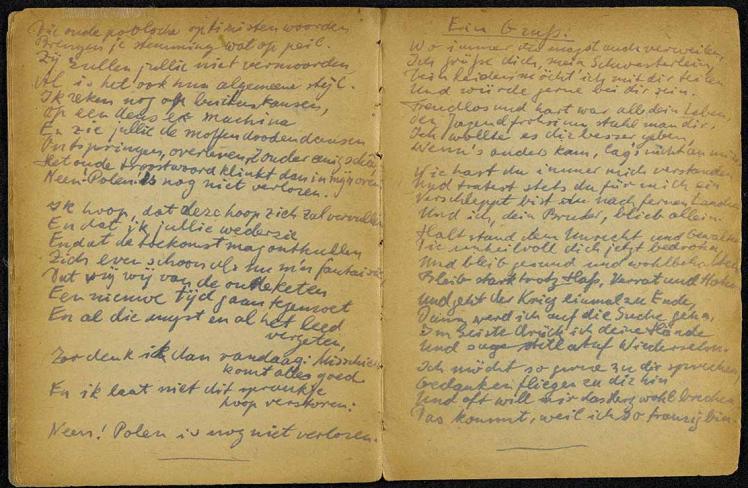 Die oude poolsche optimisten woorden
Brengen je stemming wat op peil.
Zij zullen jullie niet vermoorden
Al is het ook hun algemeene stijl.
Ik reken nog op buitenkansen,
Op een deus ex machina
En zie jullie de moffendoodendansen
Ontspringen, overleven, zonder
Het oude troostwoord klinkt dan in mijn oren
Neen! Polen is nog niet verloren.
Ik hoop, dat deze hoop zich zal vervullen
En dat ik jullie wederzie
En dat de toekomst mag onthullen
Zich even schoon als nu m'n fantaisie
Dat wij van de ketens
Een nieuwe tijd gaan tegemoet
En al die angst en al het leed
vergeten,
Zoo denk ik dan vandaag: Misschien
komt alles goed
En ik laat niet dit sprankje
hoop verstoren:
Neen! Polen is nog niet verloren.
Ein Gruß.
Wo immer du magst auch verweilen,
Ich grüße dich, mein Schwesterlein,
Dein Leiden möcht ich mit dir teilen
Und würde gerne bei dir sein.
Freudlos und hart war all dein Leben,
Den Jugendfrohsinn stahl man dir,
Ich wollte es dir besser geben,
Wenn's anders kam, lag's nicht an mir.
Wie hast du immer mich verstanden
Und tratest stets du für mich ein
Verschleppt bist du nach fernen Landen
Und ich, dein Bruder, blieb allein.
Halt stand dem Unrecht und Gewalten
Die unheilvoll dich jetzt bedrohen
Und bleib gesund und wohlbehalten
Bleib stark trotz Hass, Verrat und
Und geht der Krieg einmal zu Ende,
Dann werd ich auf die Suche gehn,
Im Geiste drück ich deine Hände
Und sage still auf Wiedersehn.
Ich möcht so gerne zu dir sprechen
Gedanken fliegen zu dir hin
Und oft will mir das Herz wohl brechen
Das kommt, weil ich so traurig bin.